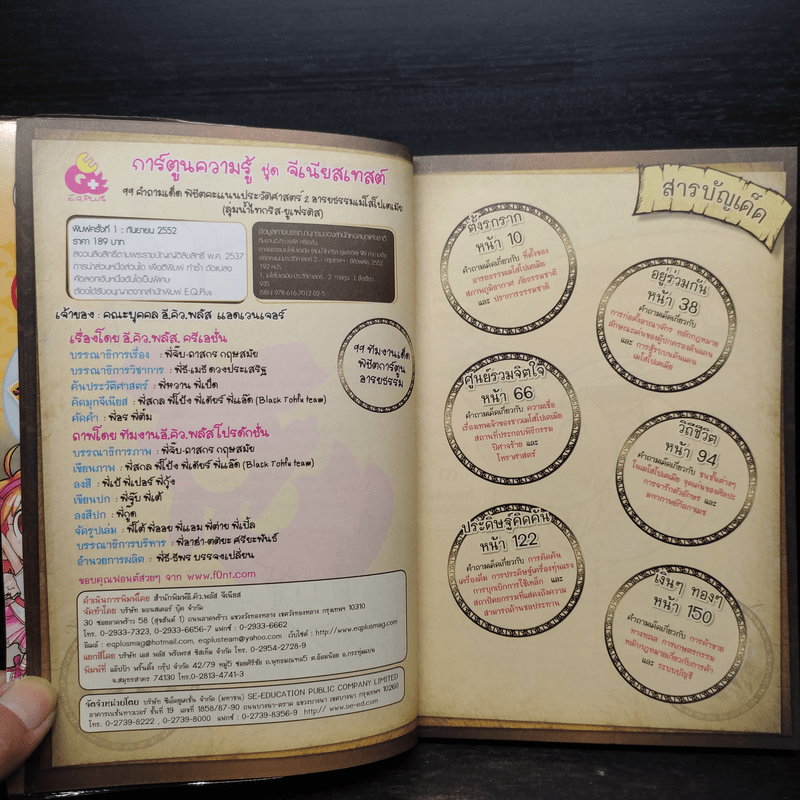 E.Q.PLUS
การ์ตูนความรู้ ชุด จีเนียสเทสต์
99 คำถามเด็ด พิชิตคะแนนประวัติศาสตร์ 2 อารยธรรมเมโสโปเตเมีย
(ลุ่มน้ำไทกริส-ยูเฟรติส)
พิมพ์ครั้งที่ 1 : กันยายน 2552
ราคา 189 บาท
สงวนลิขสิทธิ์ตามพระราชบัญญัติลิขสิทธิ์ พ.ศ. 2537
การนำส่วนหนึ่งส่วนใด เพื่อตีพิมพ์ ทำซ้ำ ดัดแปลง
คัดลอกอันหนึ่งอันใดเป็นพิเศษ
ต้องได้รับอนุญาตจากสำนักพิมพ์ E.Q.Plus
ข้อมูลทางบรรณานุกรมของสำนักหอสมุดแห่งชาติ
192 หน้า
935
ISBN 978-616-7012-02-5
เจ้าของ : คณะบุคคล อี.คิว.พลัส แอดเวนเจอร์
เรื่องโดย อี.คิว.พลัส ครีเอชั่น
บรรณาธิการเรื่อง : พี่จิ๊บ-ถาสกร กฤษสมัย
บรรณาธิการวิชาการ : พี่ธี-เมธี ดวงประเสริฐ
ค้นประวัติศาสตร์ : พี่หวาน พี่เป็ด
คิดมุกจีเนียส : พี่สกล พี่โป้ง พี่เดียร์ พี่แอ๊ด (Black Tohfu team)
คัดคำ : พี่อร พี่ต้ม
99 ทีมงานเด็ด
พิชิตการ์ตูน
อารยธรรม
ภาพโดย ทีมงานอี.คิว.พลัสโปรดักชั่น
บรรณาธิการภาพ : พี่จิ๊บ-ถาสกร กฤษสมัย
เขียนภาพ : พี่สกล พี่โป้ง พี่เดียร์ พี่แอ๊ด (Black Tohfu team)
ลงสี : พี่เป้ พี่เปอร์ พี่กุ้ง
เขียนปก : พี่จิ๊บ พี่เต้
ลงสีปก : พี่กู๊ด
จัดรูปเล่ม : พี่โต้ พี่ออย พี่แอม พี่ต่าย พี่เปิ้ล
บรรณาธิการบริหาร : พี่อาฮ่า-ตติยะ ศรียะพันธ์
อำนวยการผลิต : พี่ธี-ธีพร บรรจงเปลี่ยน
ขอบคุณฟอนต์สวยๆ จาก www.f0nt.com
ดำเนินการพิมพ์โดย สำนักพิมพ์อี.คิว.พลัส จีเนียส
จัดทำโดย บริษัท มอนสเตอร์ บุ๊ค จำกัด
30 ซอยลาดพร้าว 58 (สุขสันต์ 1) ถนนลาดพร้าว แขวงวังทองหลาง เขตวังทองหลาง กรุงเทพฯ 10310
โทร. 0-2933-7323, 0-2933-6656-7 แฟกซ์ : 0-2933-6662
อีเมล์ : eqplusmag@hotmail.com, eqplusteam@yahoo.com เว็บไซต์ : http://www.eqplusmag.com
แยกสีโดย บริษัท เลส พลัส พรีเพรส ซิสเท็ม จำกัด โทร. 0-2954-2728-9
พิมพ์ที่ แอ๊ปป้า พริ้นติ้ง กรุ๊ป จำกัด 42/79 หมู่5 ซอยศิริชัย ถ.พุทธมณฑล5 ต.อ้อมน้อย อ.กระทุ่มแบน
จ.สมุทรสาคร 74130 โทร.0-2813-4741-3
จัดจำหน่ายโดย บริษัท ซีเอ็ดยูเคชั่น จำกัด (มหาชน) SE-EDUCATION PUBLIC COMPANY LIMITED
อาคารเนชั่นทาวเวอร์ ชั้นที่ 19 เลขที่ 1858/87-90 ถนนบางนา-ตราด แขวงบางนา เขตบางนา กรุงเทพฯ 10260
โทร. 0-2739-8222, 0-2739-8000 แฟกซ์ : 0-2739-8356-9 http://www.se-ed.com
สารบัญเด็ด
ตั้งรกราก
หน้า 10
คำถามเด็ดเกี่ยวกับ ที่ตั้งของ
อารยธรรมเมโสโปเตเมีย
สภาพภูมิอากาศ ภัยธรรมชาติ
และ ปราการธรรมชาติ
อยู่ร่วมกัน
หน้า 38
คำถามเด็ดเกี่ยวกับ
การก่อตั้งอาณาจักร หลักกฎหมาย
ลักษณะเด่นของผู้ปกครองดินแดน
และ การสู้รบบนดินแดน
เมโสโปเตเมีย
ศูนย์รวมจิตใจ
หน้า 66
คำถามเด็ดเกี่ยวกับ ความเชื่อ
เรื่องเทพเจ้าของชาวเมโสโปเตเมีย
สถานที่ประกอบพิธีกรรม
ปีศาจร้าย และ
โหราศาสตร์
วิถีชีวิต
หน้า 94
คำถามเด็ดเกี่ยวกับ ชนชั้นต่างๆ
ในเมโสโปเตเมีย จุดเด่นของศิลปะ
การจารึกตัวอักษร และ
มหากาพย์กิลกาเมช
ประดิษฐ์คิดค้น
หน้า 122
คำถามเด็ดเกี่ยวกับ การคิดค้น
เครื่องดื่ม การประดิษฐ์เครื่องทุ่นแรง
การบุกเบิกการใช้เหล็ก และ
สถาปัตยกรรมที่แสดงถึงความ
สามารถด้านชลประทาน
เงินๆ ทองๆ
หน้า 150
คำถามเด็ดเกี่ยวกับ การค้าขาย
ทางทะเล การเกษตรกรรม
หลักกฎหมายเกี่ยวกับการค้า
และ ระบบบัญชี